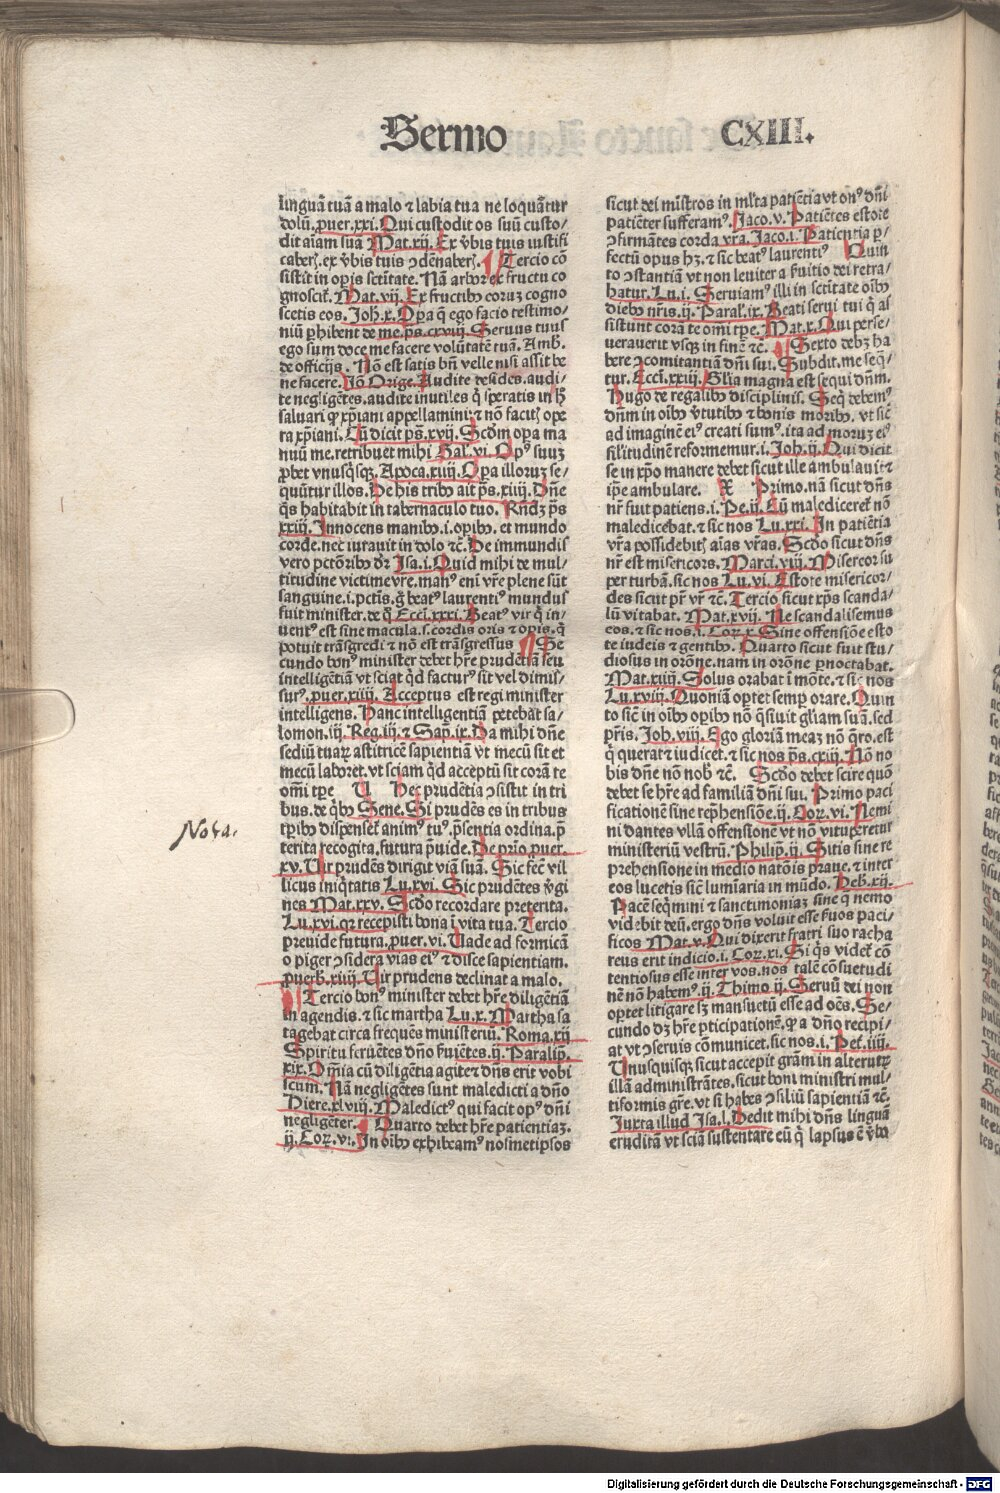 Sermo CXIII.
linguā tuā a malo ⁊ labia tua ne loquātur
dolū. ꝓuer.xxi. Qui custodit os suū custo/
dit aīam suā Mat.xij. Ex v̄bis tuis iustifi
caberꝭ. ex v̄bis tuis ꝯdēnaberꝭ. ¶ Tercio cō
sistit in oꝑis sctītate. Nā arbor ex fructu co
gnoscit᷑. Mat.vij. Ex fructibꝰ eoruꝫ cogno
scetis eos. Joh.x. Oꝑa q̄ ego facio testimo/
niū ꝑhibent de me. ps.cxviij. Seruus tuus
ego sum doce me facere volūtatē tuā. Amb.
de officijs. Nō est satis bn̄ velle nisi assit be
ne facere. Nā Orige. Audite desides. audi/
te negligētes. audite inutiles q̇ speratis in hͦ
saluari ꝙ xp̄iani appellamini: ⁊ nō facitꝭ ope
ra xp̄iani. Cū dicit ps̄.xvij. Scd̄m opa ma
nuū me. retribuet mihi Gal̓.vi. Opꝰ suuꝫ
ꝓbet vnusq̇sqꝫ. Apoca.xiiij. Opa illoruꝫ se/
quūtur illos. De his tribꝰ ait ps̄.xiiij. Dn̄e
q̇s habitabit in tabernaculo tuo. Rn̄dꝫ ps̄
xxiij. Innocens manibꝰ.i. opibꝰ. et mundo
corde. nec iurauit in dolo ⁊c̄. De immundis
vero pctōribꝰ dr̄ Isa.i. Quid mihi de mul/
titudine victime vr̄e. manꝰ eni vr̄e plene sūt
sanguine.i. pctīs. g̊ beatꝰ laurentiꝰ mundus
fuit minister. de q̊ Eccī.xxxi. Beatꝰ vir q̇ in/
uentꝰ est sine macula.s. cordis oris ⁊ opis. q̇
potuit trāsgredi ⁊ nō est trāsgressus ¶ Se
cundo bonꝰ minister debet hr̄e prudētiā seu
intelligētiā vt sciat q̇d facturꝰ sit vel dimis/
surꝰ. ꝓuer.xiiij. Acceptus est regi minister
intelligens. Hanc intelligentiā petebāt sa/
lomon. iij. Reg.iij. ⁊ Sap̄.ix. Da mihi dn̄e
sediū tuaꝝ assitricē sapientiā vt mecū sit et
mecū laboret. vt sciam q̇d acceptū sit corā te
om̄i tp̄e V Hec prudētia ꝯsistit in tri
bus. de q̇bꝰ Sene. Si prudēs es in tribus
tp̄ibꝰ dispenset᷑ animꝰ tuꝰ. p̄sentia ordina. p̄
terita recogita. futura ꝓuide. De prio ꝓuer.
xv. Uir prudēs dirigit viā suā. Sic fec̄ vil
licus iniq̇tatis Lu.xvi. Sic prudētes v̓gi
nes Mat.xxv. Scd̄o recordare preterita.
Lu.xvi. qꝛ recepisti bona ī vita tua. Tercio
preuide futura. ꝓuer.vi. Uade ad formicā
o piger ꝯsidera vias eiꝰ ⁊ disce sapientiam.
ꝓuerb̓.xiiij. Uir prudens declinat a malo.
¶ Tercio bonꝰ minister debet hr̄e diligētiā
in agendis. ⁊ sic martha Lu.x. Martha sa
tagebat circa frequēs ministeriū. Roma.xij
Spiritu feruētes dn̄o s̓uiētes. ij. Paralip̄.
xix. Om̄ia cū diligētia agite ⁊ dn̄s erit vobi
scum. Nā negligētes sunt maledicti a dn̄o
Hiere.xlviij. Maledictꝰ qui facit opꝰ dn̄i
negligēter. ¶ Quarto debet hr̄e patientiaꝫ.
ij. Coꝝ.vi. In oībꝰ exhibeamꝰ nosmetip̄sos
Nota.
sicut dei mīstros in ml̓ta patiētia vt onꝰ dn̄i
patiēter sufferamꝰ. Jaco.v. Patiētes estote
ꝯfirmātes corda vr̄a. Jaco.i. Patientia ꝑ/
fectū opus hꝫ. ⁊ sic beatꝰ laurentiꝰ Quin
to ꝯstantiā vt non leuiter a s̓uitio dei retra/
hatur. Lu.i. Seruiamꝰ illi in sctītate oībꝰ
diebꝰ nr̄is. ij. Paral̓.ix. Beati serui tui q̇ as
sistunt corā te om̄i tp̄e. Mat.x. Qui perse/
uerauerit vsqꝫ in finē ⁊c̄. ¶ Sexto debꝫ ha
bere ꝯcomitantiā dn̄i sui. Subdit. me seq̄/
tur. Eccī.xxiij. Gl̓ia magna est sequi dn̄m.
Hugo de regalibꝰ disciplinis. Seq̇ debemꝰ
dn̄m in oībꝰ v̓tutibꝰ ⁊ bonis moribꝰ. vt sic̄
ad imaginē eiꝰ creati sumꝰ. ita ad moruꝫ eiꝰ
sil̓itudinē reformemur. i. Joh.ij. Qui dicit
se in xp̄o manere debet sicut ille ambulauit ⁊
ip̄e ambulare. X Primo. nā sicut dn̄s
nr̄ fuit patiens. i. Pe.ij. Cū malediceret᷑ nō
maledicebat. ⁊ sic nos Lu.xxi. In patiētia
vr̄a possidebitꝭ aīas vr̄as. Scd̄o sicut dn̄s
nr̄ est misericors. Marci.viij. Misereor su
per turbā. sic nos Lu.vi. Estote misericor/
des sicut pr̄ vr̄ ⁊c̄. Tercio sicut xp̄s scanda/
lū vitabat. Mat.xvij. Ne scandalisemus
eos. ⁊ sic nos. i. Coꝝ.x. Sine offensiōe esto
te iudeis ⁊ gentibꝰ. Quarto sicut fuit stu/
diosus in orōne. nam in orōne ꝑnoctabat.
Mat.xiiij. Solus orabat ī mōte. ⁊ sic nos
Lu.xviij. Quoniā oꝑtet semꝑ orare. Quin
to sic̄ in oībꝰ opibꝰ nō q̄siuit gl̓iam suā. sed
pr̄is. Joh.viij. Ego gloriā meaꝫ nō q̄ro. est
q̇ querat ⁊ iudicet. ⁊ sic nos ps̄.cxiij. Nō no
bis dn̄e nō nobꝭ ⁊c̄. Scd̄o debet scire quō
debet se hr̄e ad familiā dn̄i sui. Primo paci
ficationē sine rep̄hensiōe. ij. Coꝝ.vi. Nemi
ni dantes vllā offensionē vt nō vituperetur
ministeriū vestrū. Philip̄.ij. Sitis sine re
prehensione in medio natōis praue. ⁊ inter
eos lucetis sic̄ lumīaria in mūdo. Heb̓.xij.
Pacē seq̇mini ⁊ sanctimoniaꝫ sine q̄ nemo
videbit deū. ergo dn̄s voluit esse suos paci/
ficos Mat.v. Qui dixerit fratri suo racha
reus erit iudicio. i. Coꝝ.xi. Si q̇s videt᷑ cō
tentiosus esse inter vos. nos talē cōsuetudi
nē nō habemꝰ. ij. Thimo.ij. Seruū dei non
oꝑtet litigare sꝫ mansuetū esse ad oēs. Se/
cundo dꝫ hr̄e ꝑticipationē. ꝙ a dn̄o recipi/
at vt ꝯseruis cōmunicet. sic nos. i. Pet̓.iiij.
Unusquisqꝫ sicut accepit grām in alterutꝝ
illā administrātes. sicut boni ministri mul/
tiformis gr̄e. vt si habes ꝯsiliū sapientiā ⁊c̄.
Juxta illud Isa.l. Dedit mihi dn̄s linguā
eruditā vt sciā sustentare eū q̇ lapsus ē v̓bo
Digitalisierung gefördert durch die Deutsche Forschungsgemeinschaft - DFG